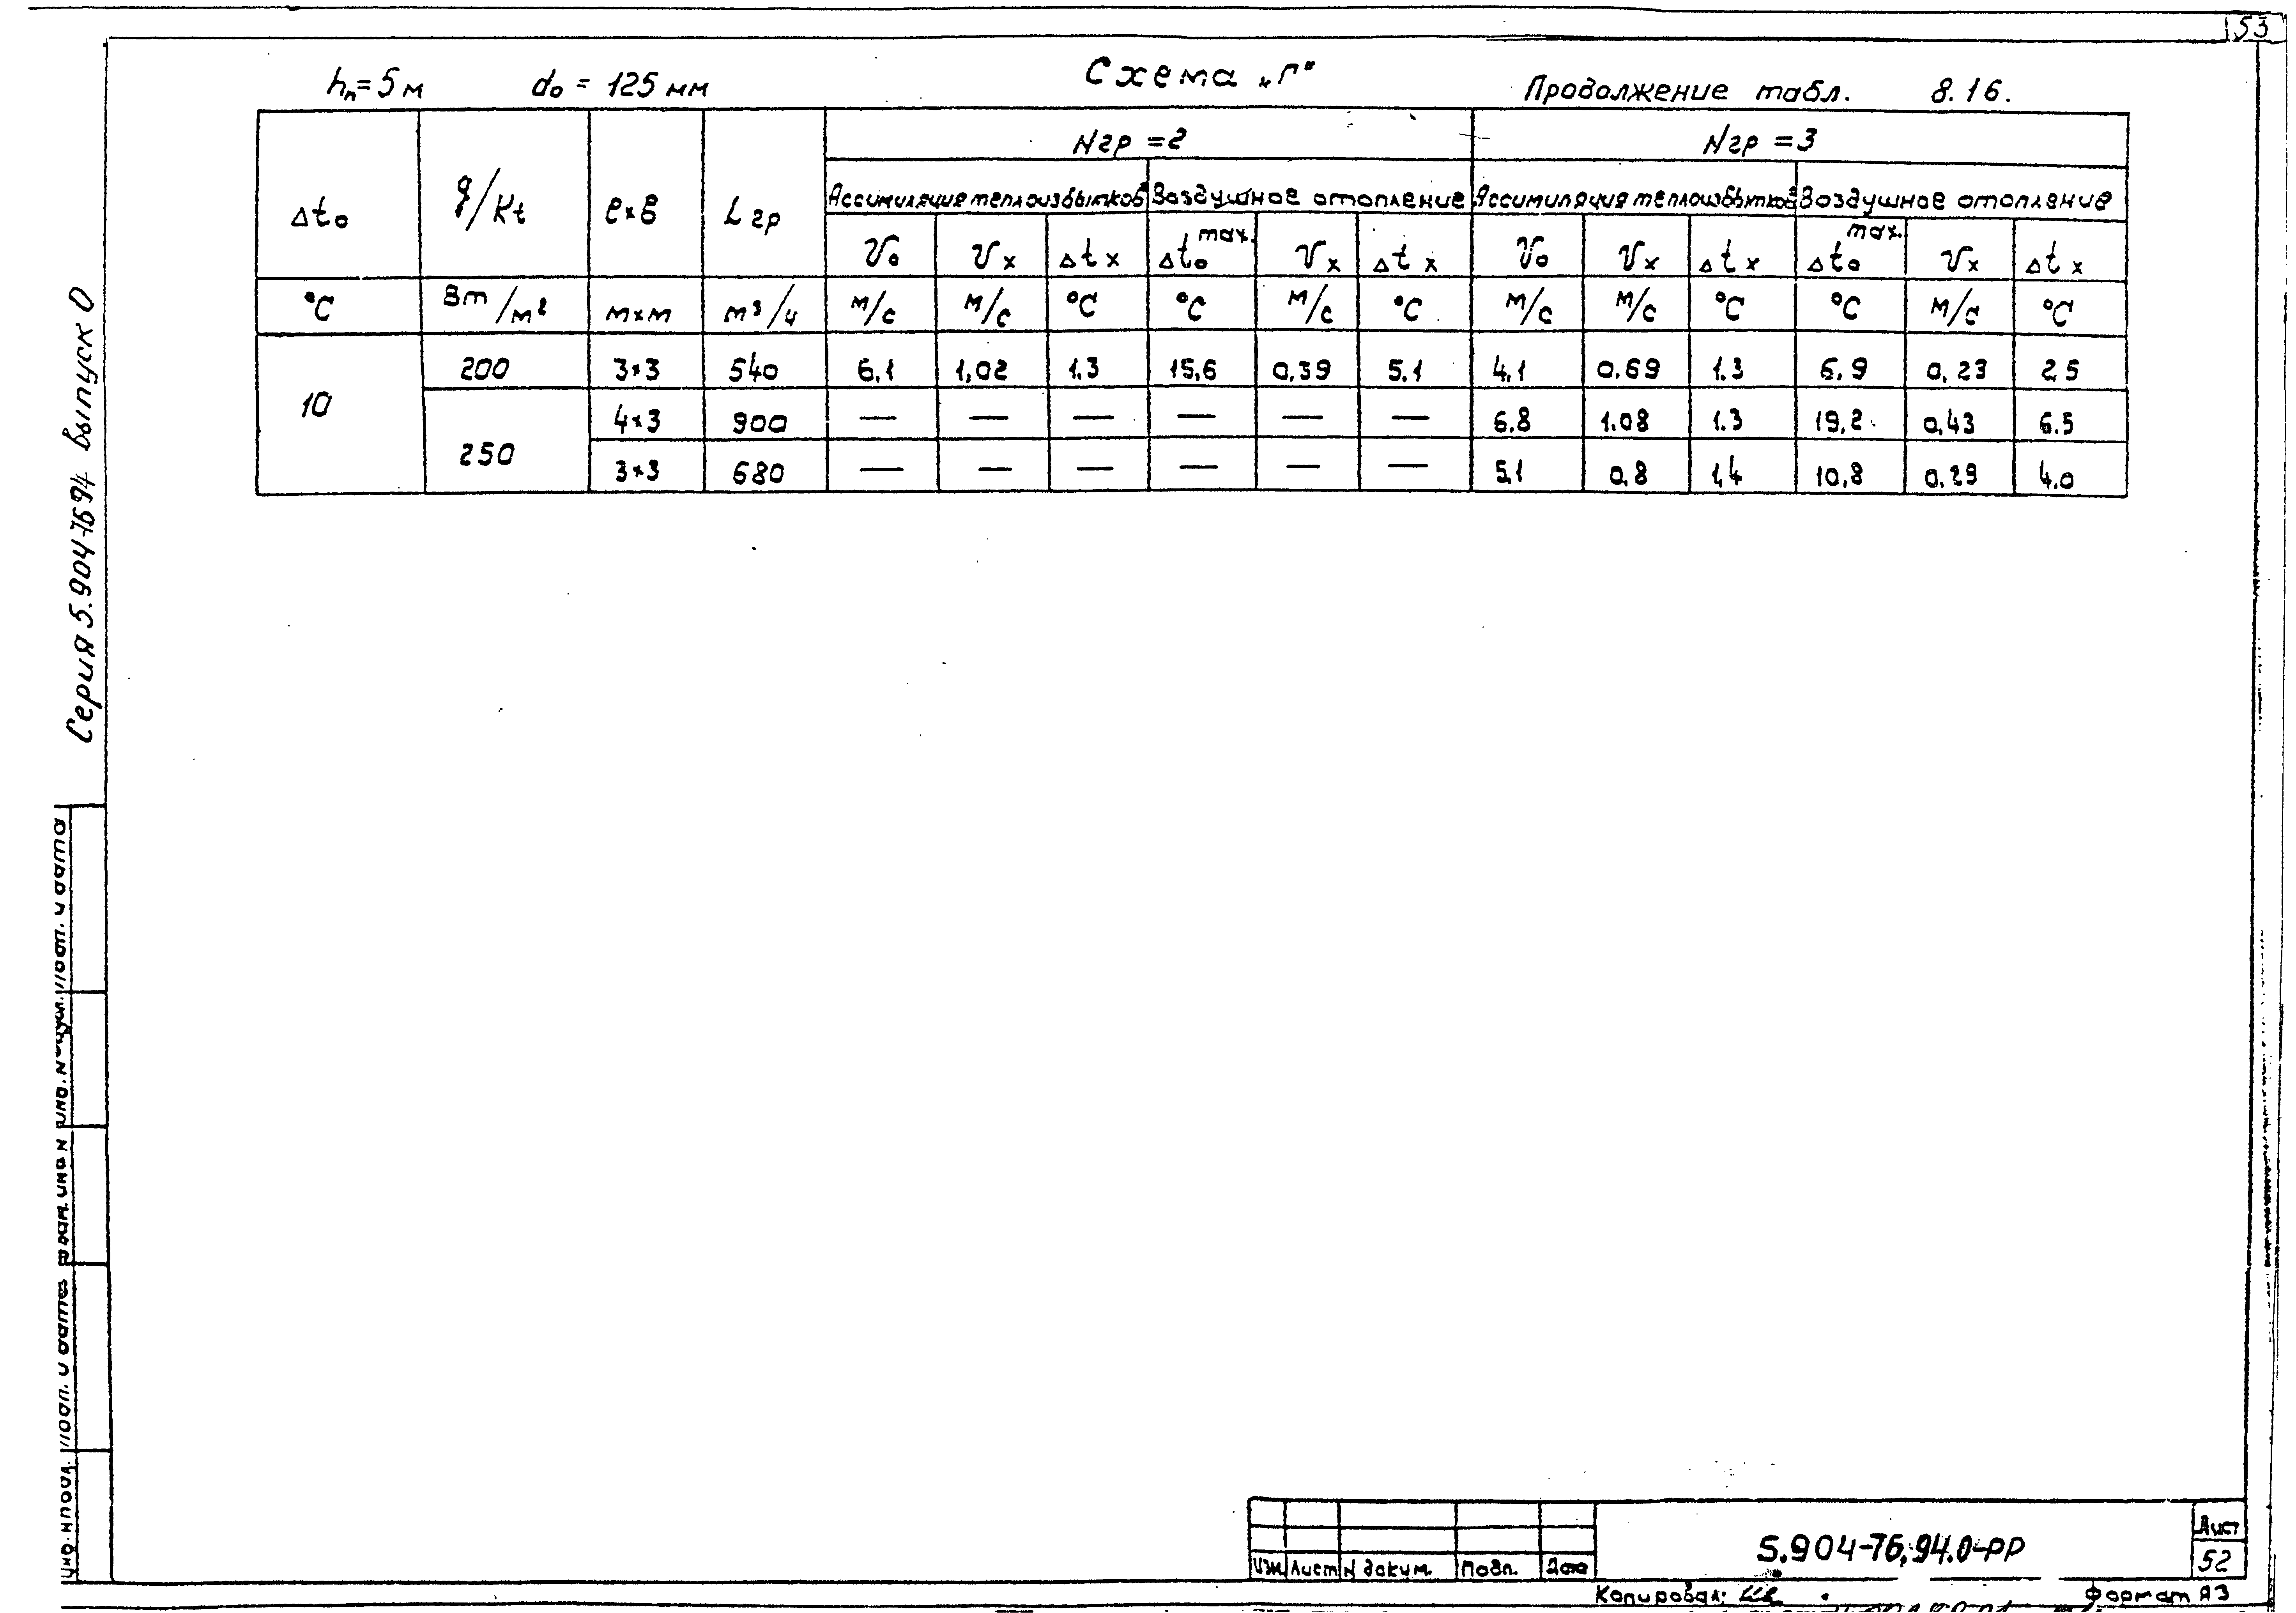 53
hп=5м d₀ = 125 мм Схема „Г" Продолжение табл. 8.16.
Δt₀ q/Kt ℓ×в Lгр Nгр =2 Nгр =3
Ассимиляция теплоизбытков Воздушное отопление Ассимиляция теплоизбытков Воздушное отопление
V₀ Vx Δtx Δt₀ max. Vx Δtx V₀ Vx Δtx Δt₀ max. Vx Δtx
°C Вт/м² м×м м³/ч м/с м/с °C °C м/с °C м/с м/с °C °C м/с °C
10 200 3×3 540 6,1 1,02 1.3 15,6 0,39 5.1 4,1 0.69 1.3 6.9 0,23 2,5
250 4×3 900 — — — — — — 6.8 1.08 1.3 19,2 0,43 6.5
3×3 680 — — — — — — 5,1 0,8 1,4 10,8 0,29 4.0
Серия 5.904-76.94 выпуск 0
Подп. и дата
Инв. N подл.
5.904-76.94.0-РР
Лист
52
Изм Лист N докум. Подп. Дата
Копировал:
Формат А3